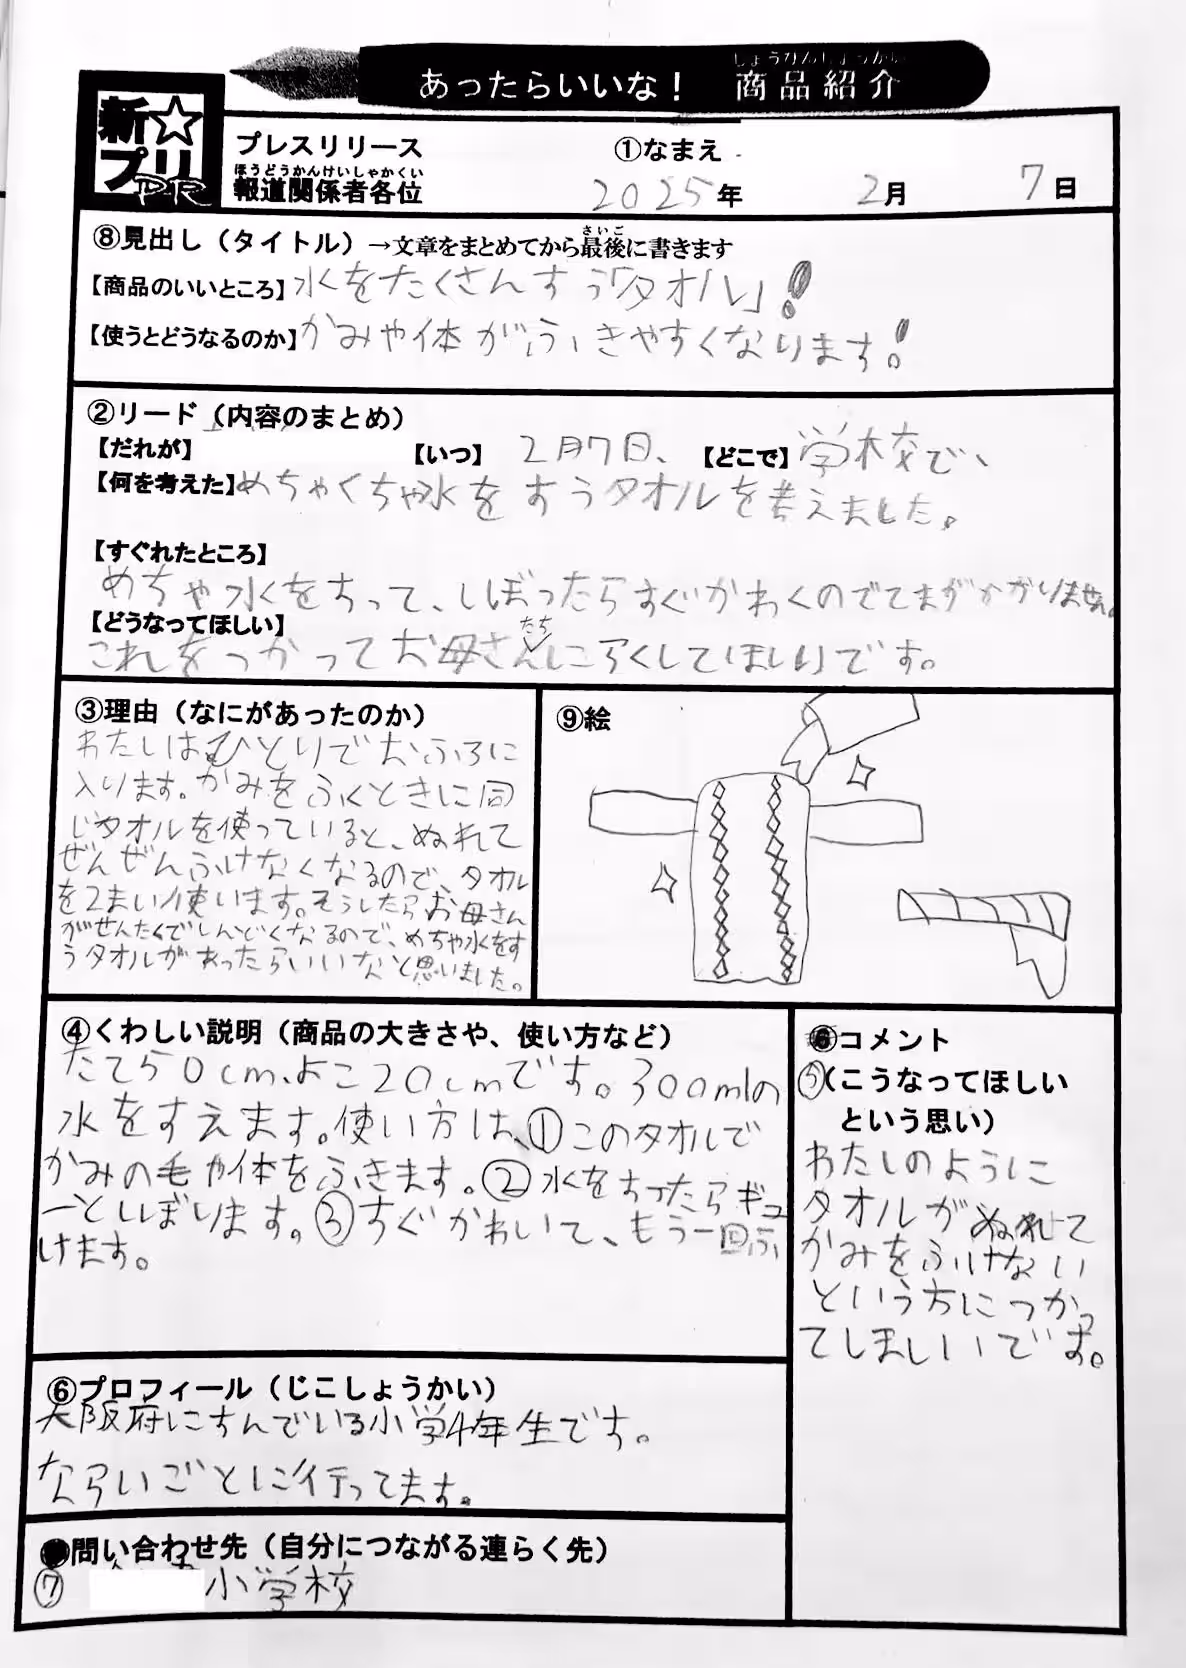 しょうひんしょうかい
あったらいいな！ 商品紹介
新☆プリ PR
プレスリリース ①なまえ
ほうどうかんけいしゃかくい
報道関係者各位 2025年 2月 7日
⑧見出し（タイトル）→文章をまとめてから最後に書きます
さいご
【商品のいいところ】水をたくさんすう「タオル」！
【使うとどうなるのか】かみや体がふきやすくなります！
②リード（内容のまとめ）
【だれが】 【いつ】 2月7日、 【どこで】学校で、
【何を考えた】めちゃくちゃ水をすうタオルを考えました。
【すぐれたところ】
めちゃ水をすって、しぼったらすぐかわくのでてまがかかりません。
【どうなってほしい】
これをつかってお母さんたちにらくしてほしいです。
③理由（なにがあったのか）
わたしはひとりでおふろに
入ります。かみをふくときに同
じタオルを使っていると、ぬれて
ぜんぜんふけなくなるので、タオル
を2まい使います。そうしたらお母さん
がせんたくでしんどくなるので、めちゃ水をす
うタオルがあったらいいなと思いました。
⑨絵
④くわしい説明（商品の大きさや、使い方など）
たて50cm、よこ20cmです。300mlの
水をすえます。使い方は、①このタオルで
かみの毛や体をふきます。②水をすったらギュ
ーとしぼります。③すぐかわいて、もう一回ふ
けます。
コメント
⑤（こうなってほしい
という思い）
わたしのように
タオルがぬれて
かみをふけない
という方につかっ
てしまししいです。
⑥プロフィール（じこしょうかい）
大阪府にすんでいる小学4年生です。
ならいごとに行ってます。
問い合わせ先（自分につながる連らく先）
⑦ 小学校